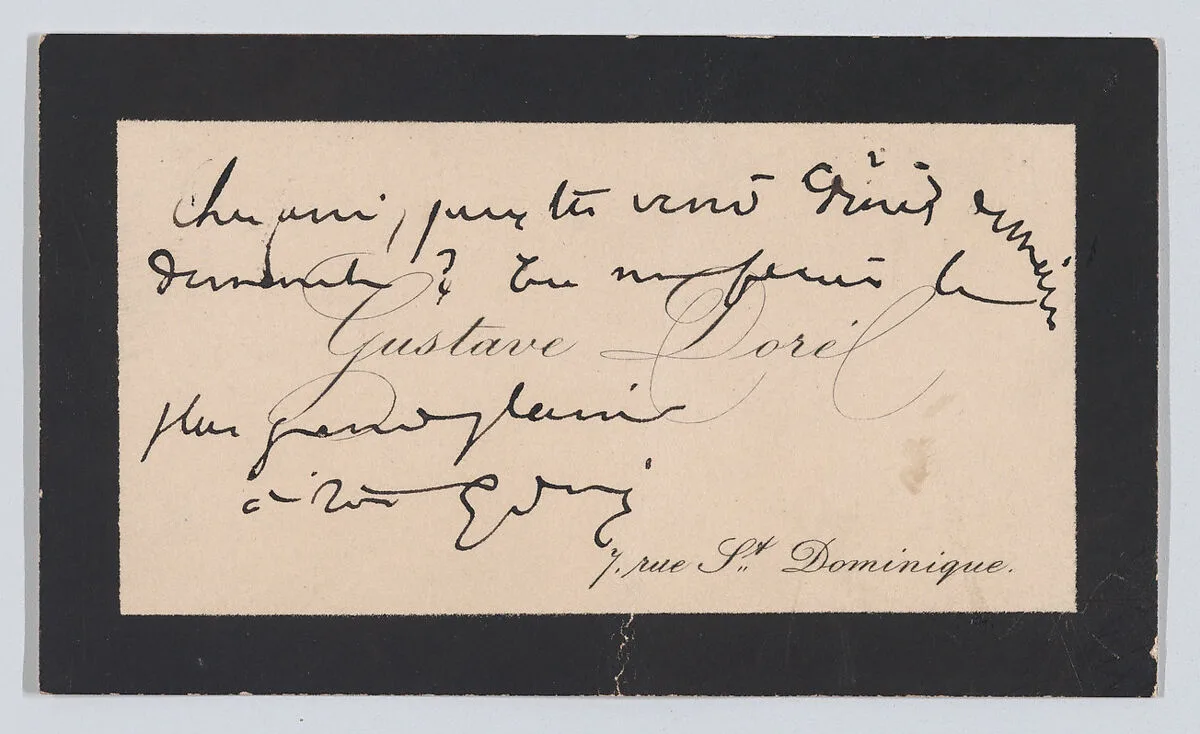 Cher ami, peux tu venir dîner demain
dimanche ? Tu me ferais le
Gustave Doré
plus grand plaisir
à toi G Doré
7, rue St. Dominique.